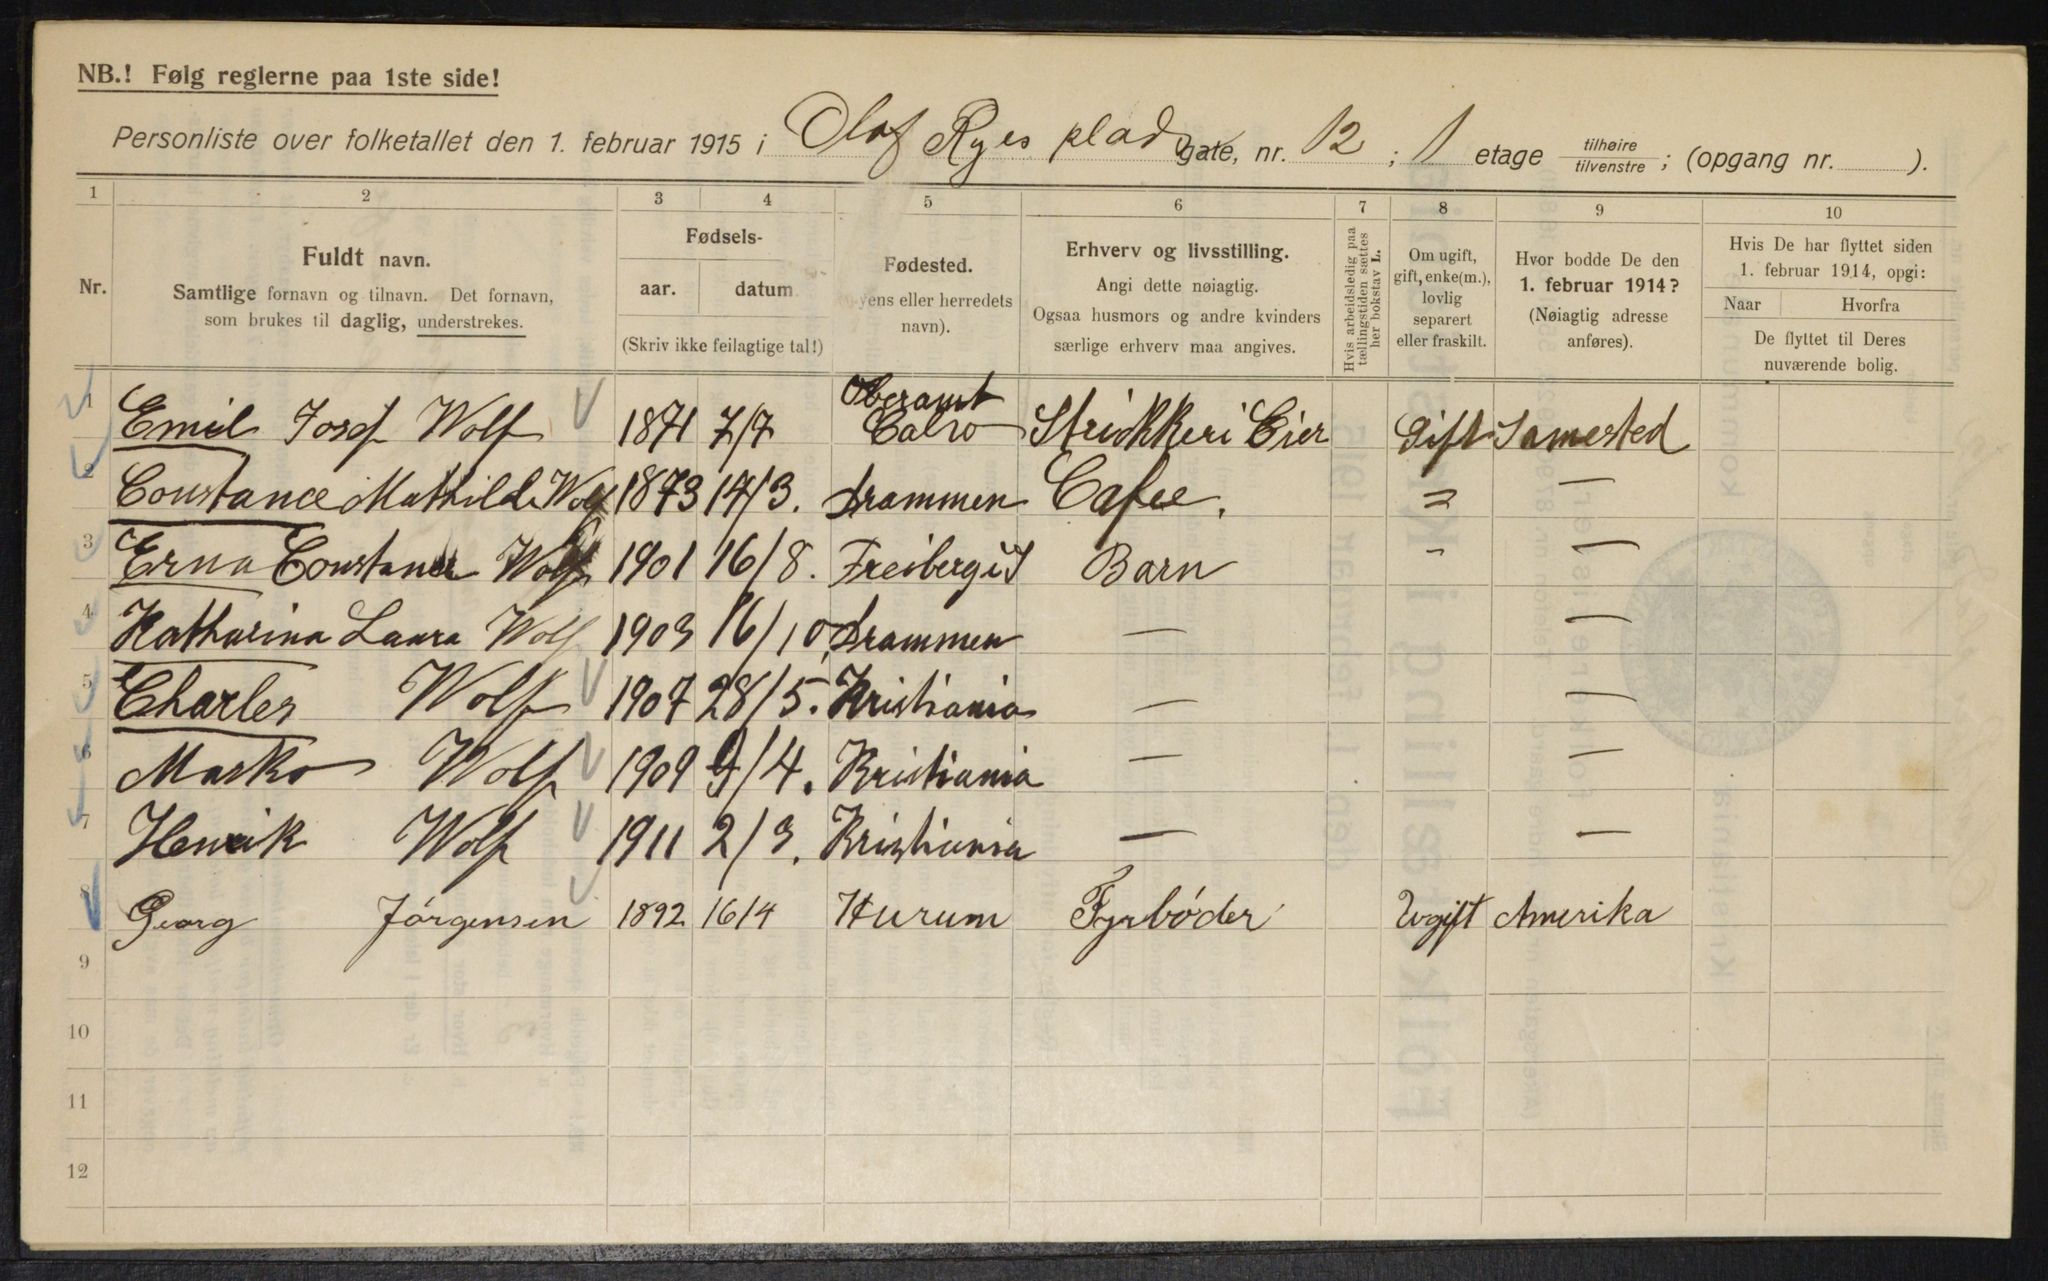 NB.! Følg reglerne paa 1ste side!
Personliste over folketallet den 1. februar 1915 i Olaf Ryes plads gate, nr. 12 ; 1 etage tilhøire tilvenstre ; (opgang nr. ).
1 2 3 4 5 6 7 8 9 10
Nr.
Fuldt navn.
Samtlige fornavn og tilnavn. Det fornavn,
som brukes til daglig, understrekes.
Fødsels-
aar. datum
(Skriv ikke feilagtige tal!)
Fødested.
yens eller herredets
navn).
Erhverv og livsstilling.
Angi dette nøiagtig.
Ogsaa husmors og andre kvinders
særlige erhverv maa angives.
Hvis arbeidsledig paa
tællingstiden sættes
her bokstav L.
Om ugift,
gift, enke(m.),
lovlig
separert
eller fraskilt.
Hvor bodde De den
1. februar 1914?
(Nøiagtig adresse
anføres).
Hvis De har flyttet siden
1. februar 1914, opgi:
Naar Hvorfra
De flyttet til Deres
nuværende bolig.
1 Emil Josef Wolf 1871 7/7 Oberamt Calw Strikkeri Eier Gift Samested
2 Constance Mathilde Wolf 1873 14/3. Drammen Cafee. = —
3 Erna Constance Wolf 1901 16/8. Barn - —
4 Katharina Laura Wolf 1903 16/10. Drammen — —
5 Charles Wolf 1907 28/5. Kristiania — —
6 Marko Wolf 1909 9/4. Kristiania — —
7 Henrik Wolf 1911 2/3. Kristiania — —
8 Georg Jörgensen 1892 16/4 Hurum Fyrbøder Ugift Amerika
9
10
11
12